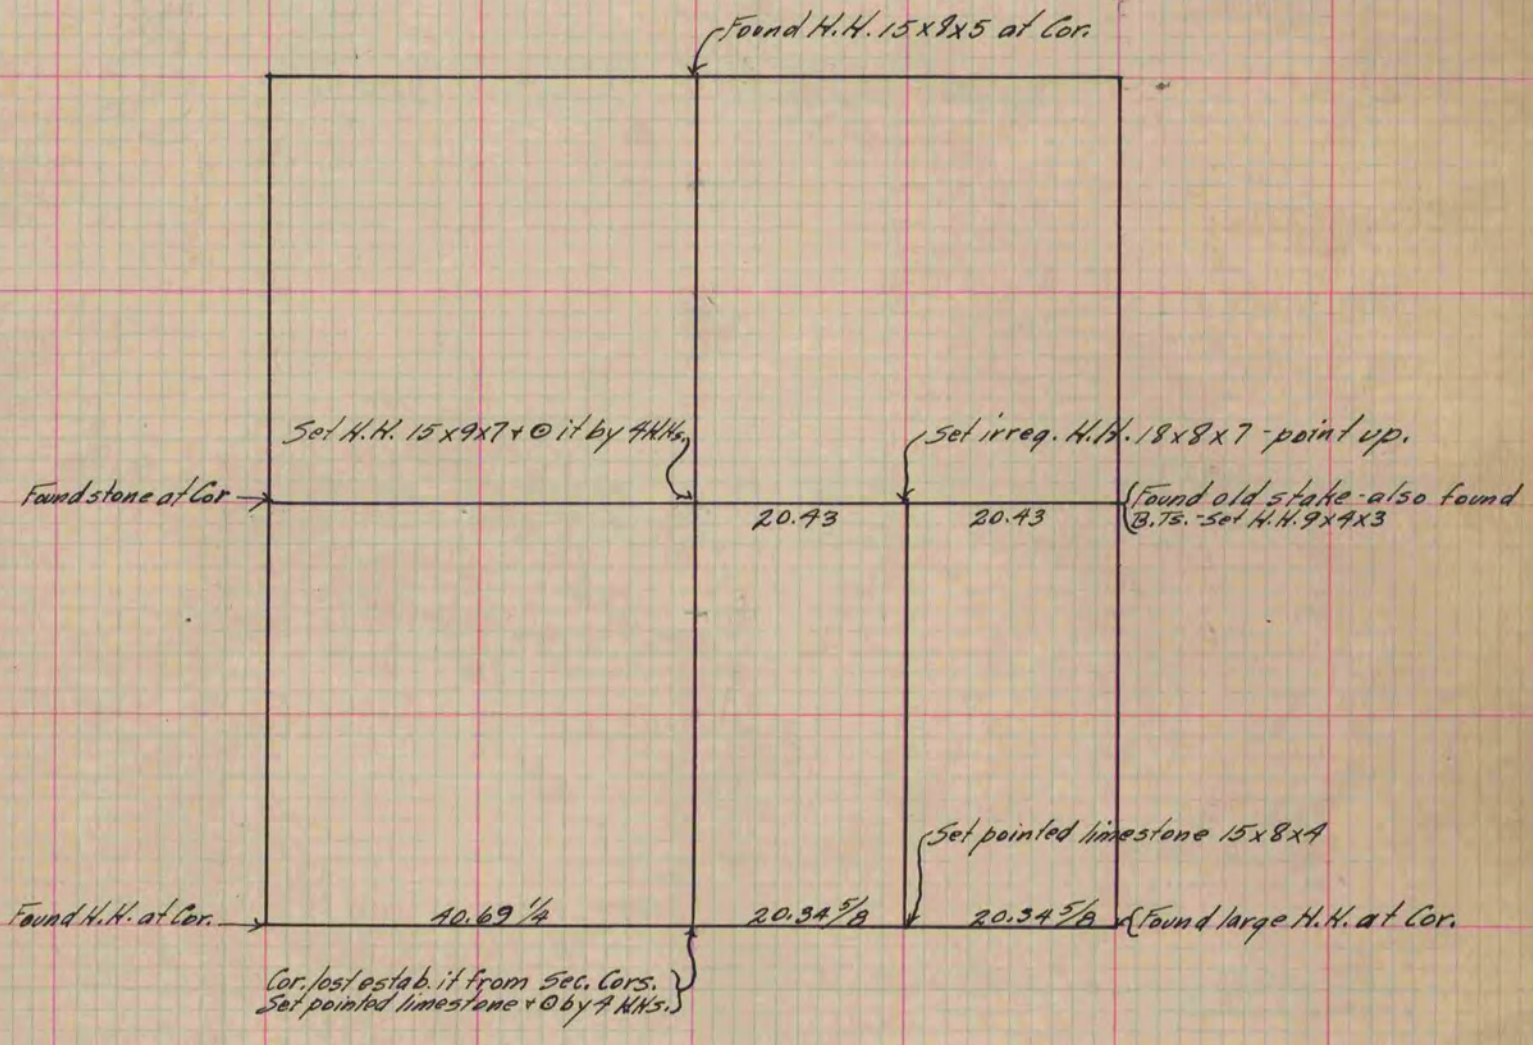 Found H.H. 15x8x5 at Cor.
Set H.H. 15x9x7 + ⊙ it by 4 HHs.
Set irreg. H.H. 18x8x7 - point up.
Found stone at Cor
20.43
20.43
Found old stake - also found
B.Ts. - Set H.H. 9x4x3
Set pointed limestone 15x8x4
Found H.H. at Cor.
40.69 1/4
20.34 5/8
20.34 5/8
Found large H.H. at Cor.
Cor. lost estab. it from Sec. Cors.
Set pointed limestone + ⊙ by 4 HHs.